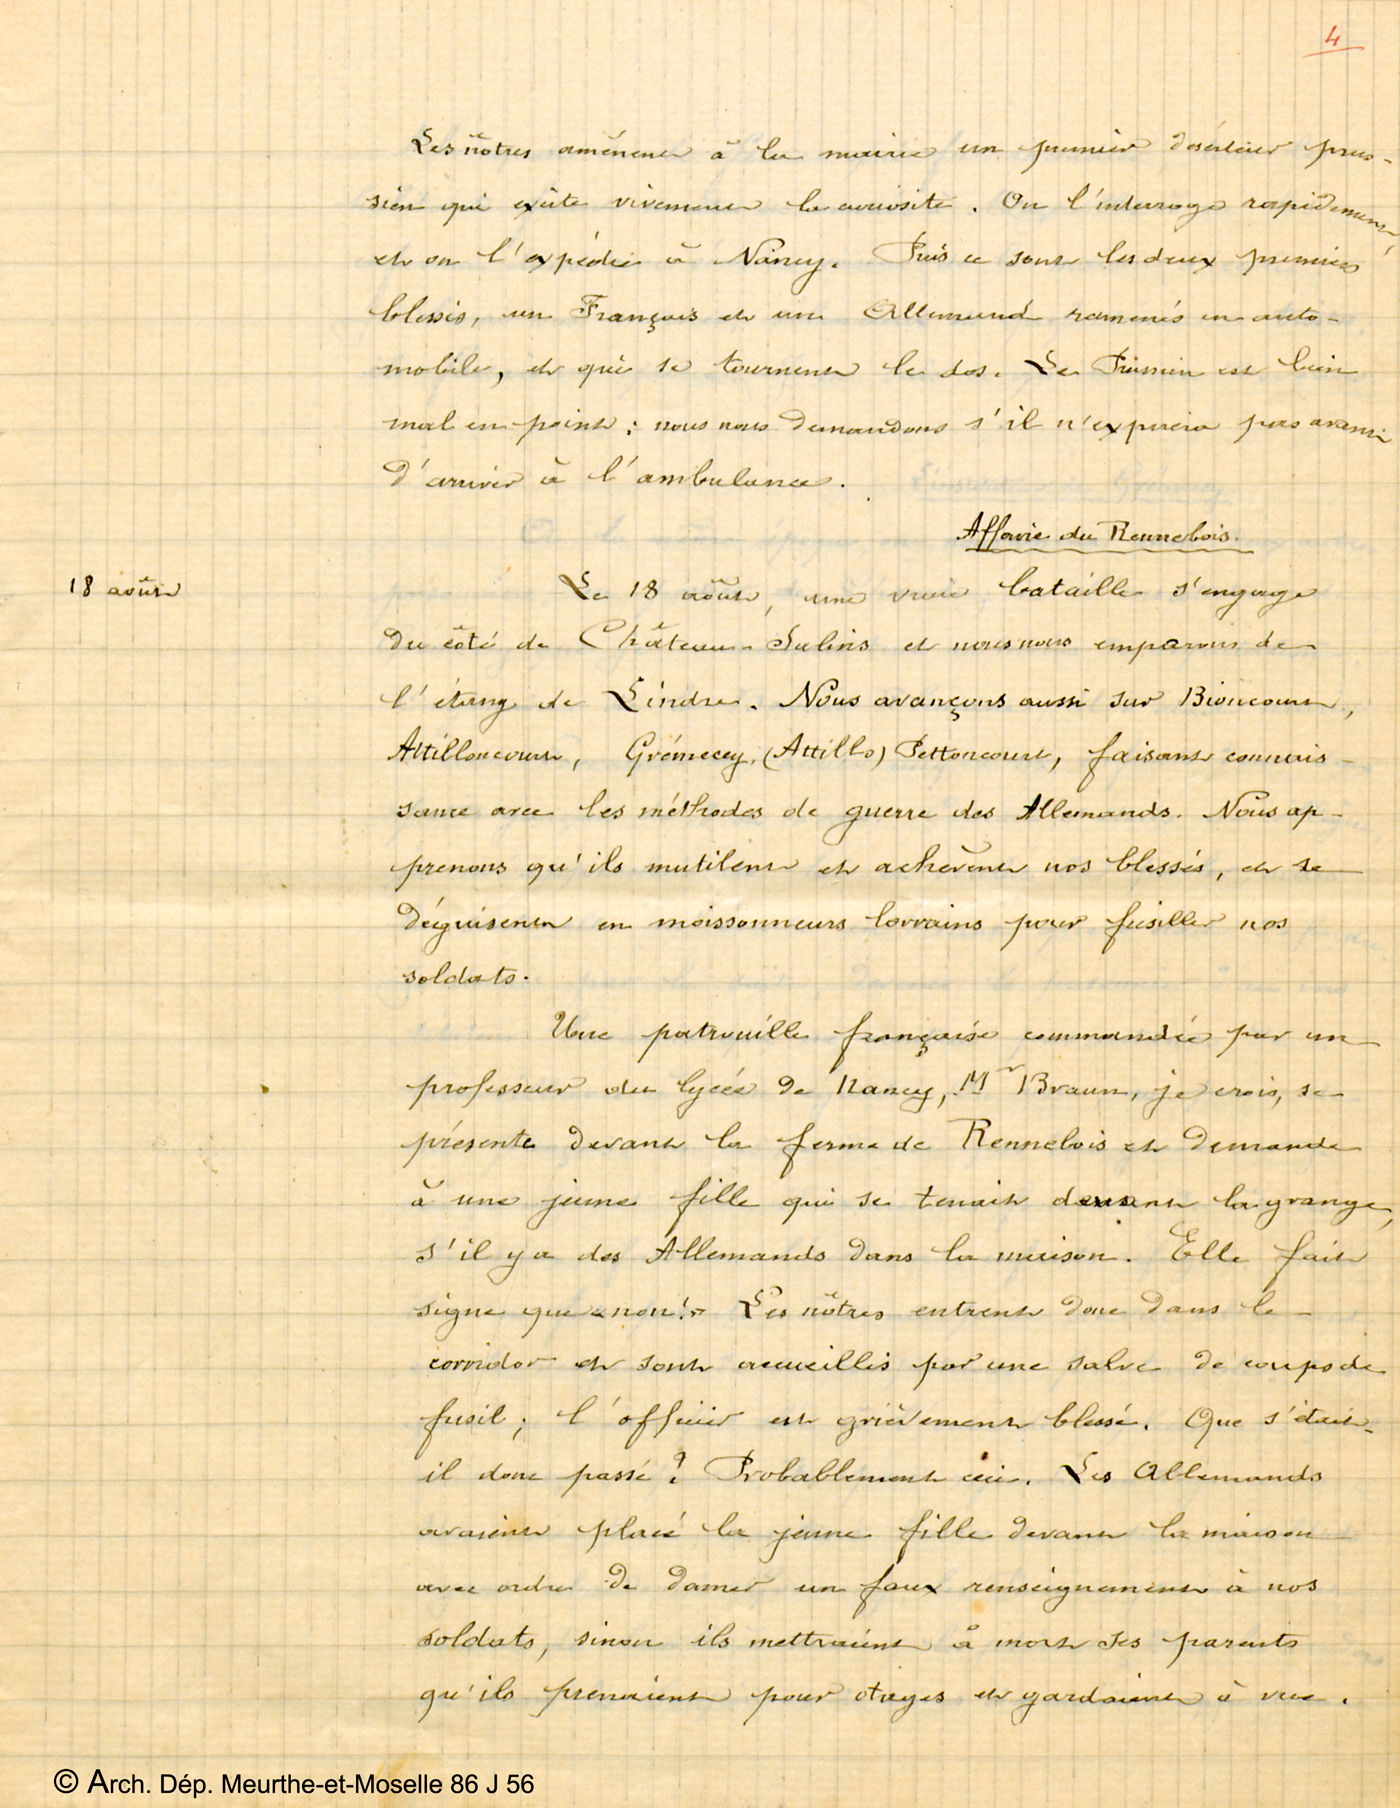 4
Les nôtres amènent à la mairie un premier déserteur prus-
sien qui excite vivement la curiosité. On l'interroge rapidement,
et on l'expédie à Nancy. Puis ce sont les deux premiers
blessés, un Français et un Allemand ramenés en auto-
mobile, et qui se tournent le dos. Le Prussien est bien
mal en point : nous nous demandons s'il n'expirera pas avant
d'arriver à l'ambulance.
Affaire du Rennebois.
18 août
Le 18 août, une vraie bataille s'engage
du côté de Château-Salins et nous nous emparons de
l'étang de Lindre. Nous avançons aussi sur Bioncourt,
Attilloncourt, Grémecey, (Attillo) Pettoncourt, faisant connais-
sance avec les méthodes de guerre des Allemands. Nous ap-
prenons qu'ils mutilent et achèvent nos blessés, et se
déguisent en moissonneurs lorrains pour fusiller nos
soldats.
Une patrouille française commandée par un
professeur du lycée de Nancy, Mr Braun, je crois, se
présente devant la ferme de Rennebois et demande
à une jeune fille qui se tenait devant la grange,
s'il y a des Allemands dans la maison. Elle fait
signe que « non! » Les nôtres entrent donc dans le
corridor et sont accueillis par une salve de coups de
fusil ; l'officier est grièvement blessé. Que s'était-
il donc passé ? Probablement ceci. Les Allemands
avaient placé la jeune fille devant la maison
avec ordre de donner un faux renseignement à nos
soldats, sinon ils mettraient à mort ses parents
qu'ils prenaient pour otages et gardaient à vue.
© Arch. Dép. Meurthe-et-Moselle 86 J 56